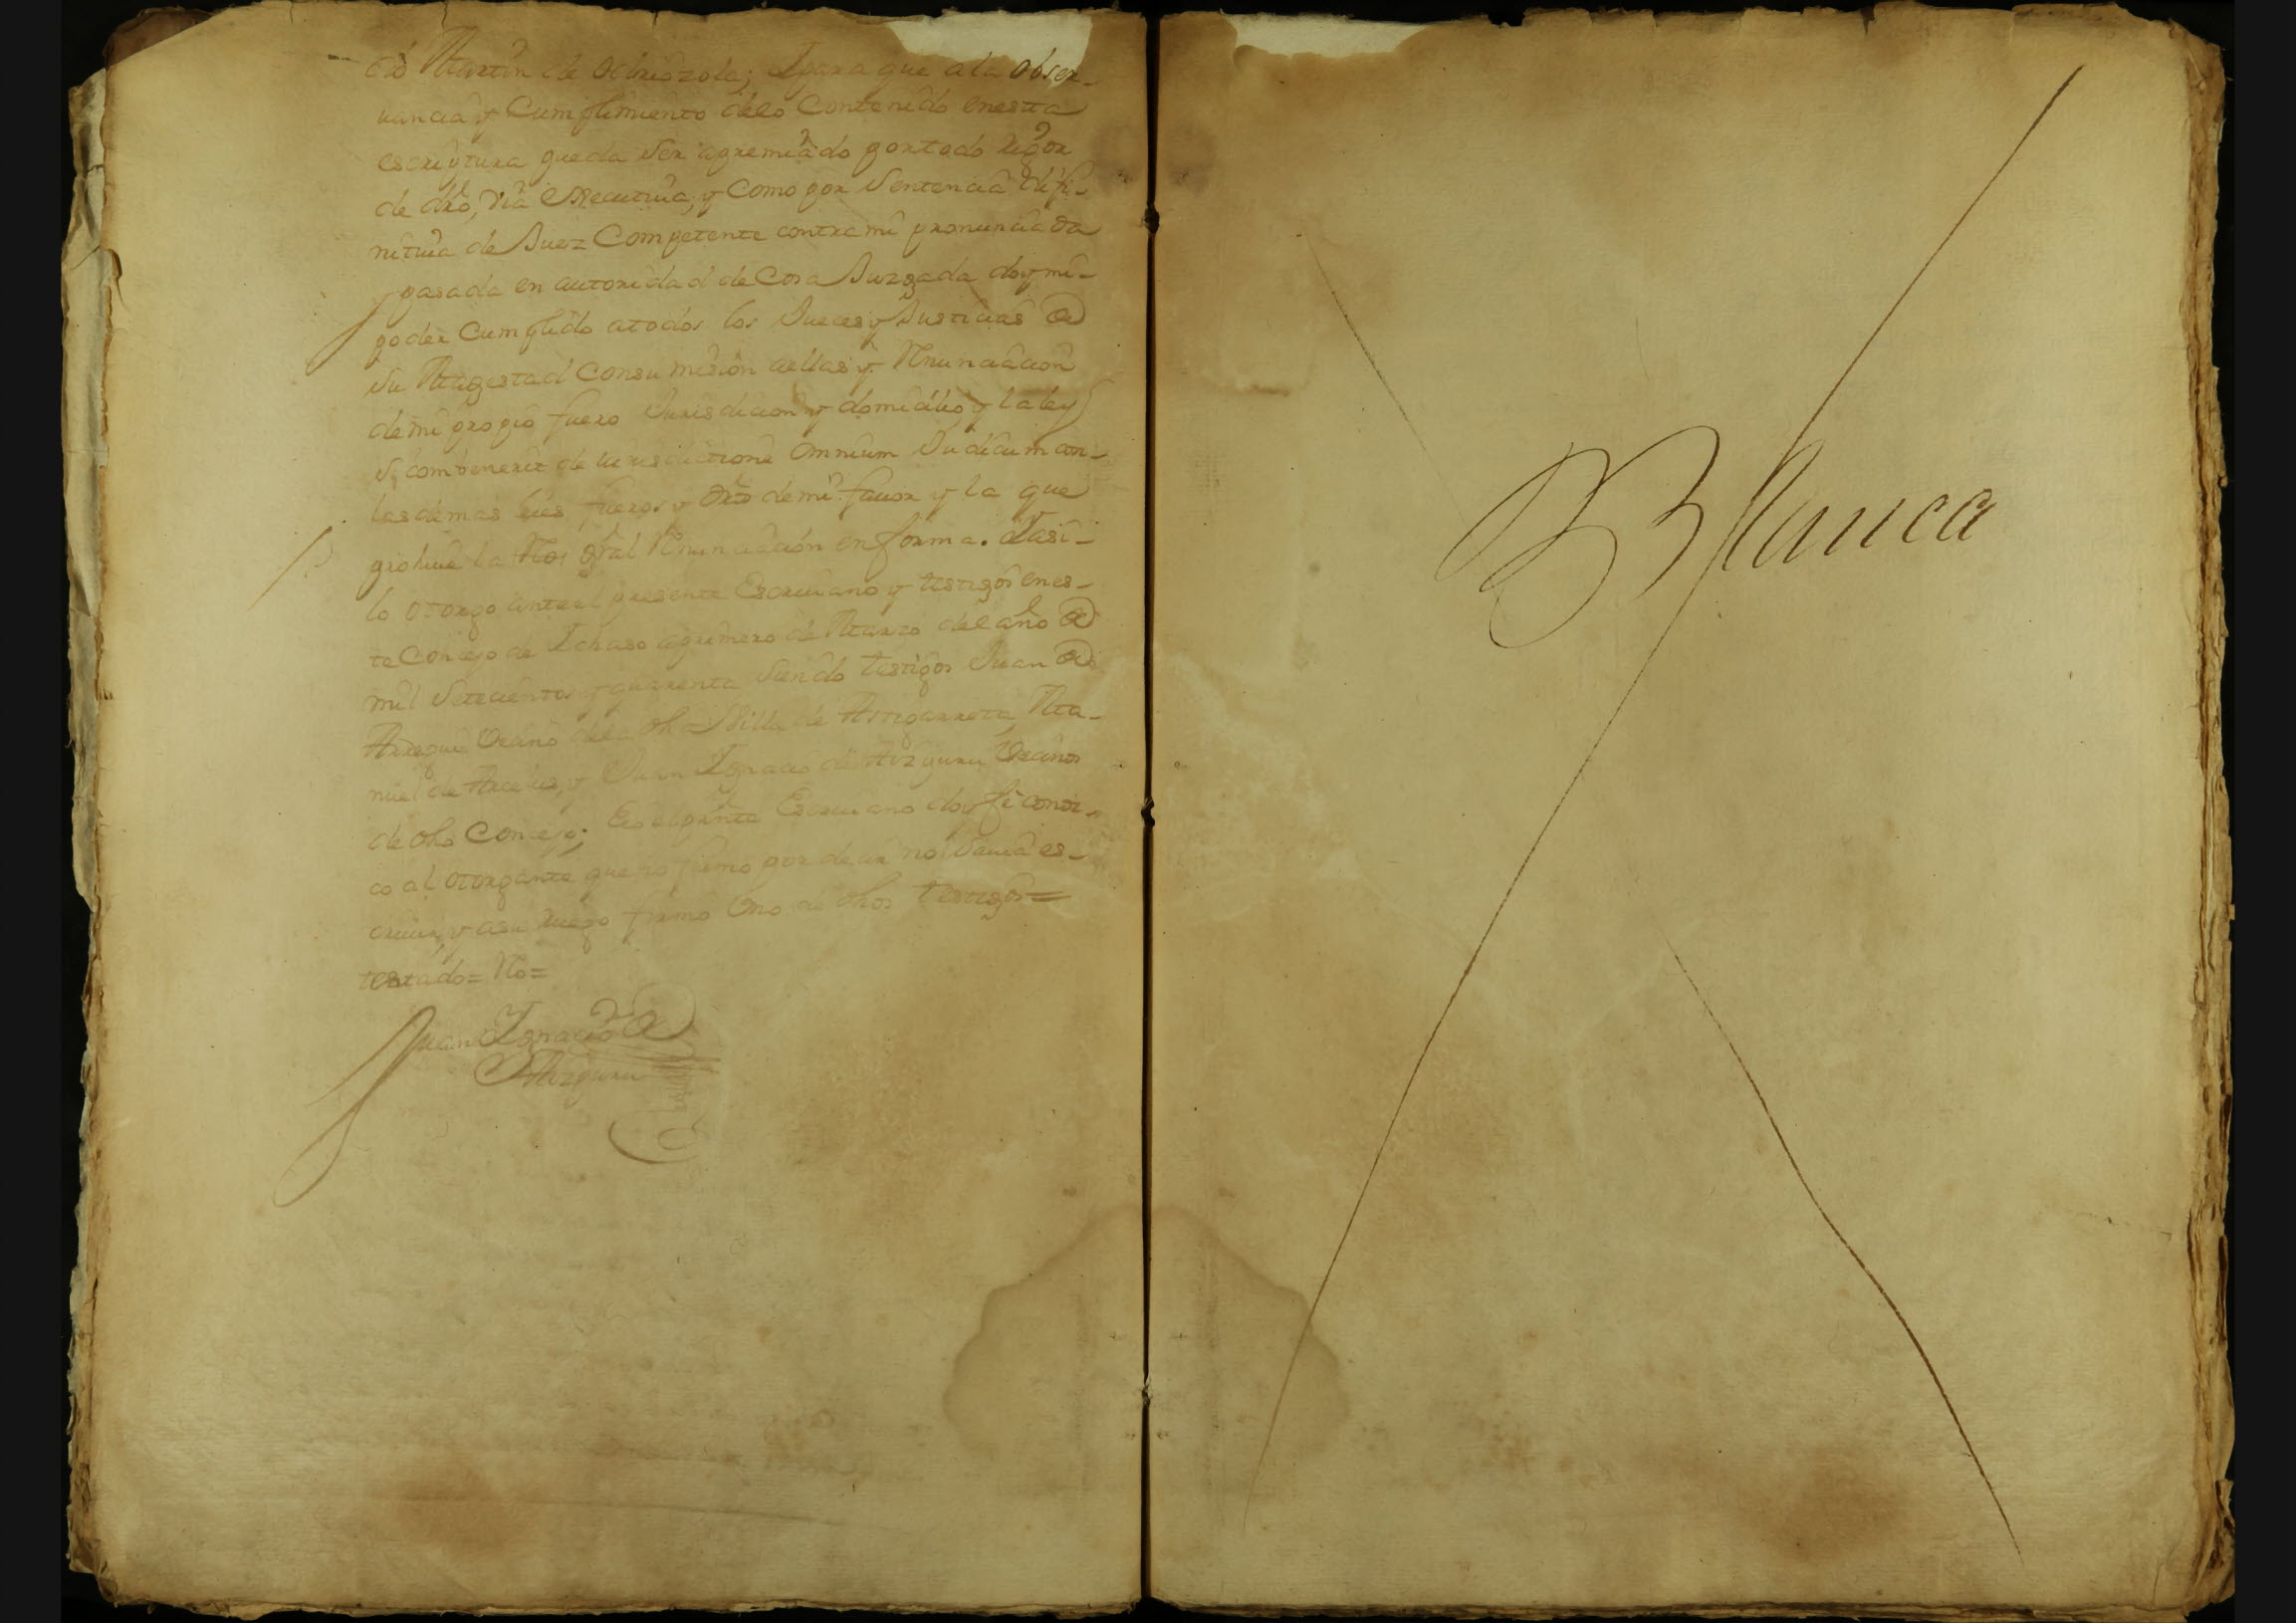 dho Martin de Odriozola; Ipara que ala obser-
uancia y Cumplimiento delo Contenido enesta
escriptura pueda ser apremiado portodo rigor
de dro, via executiua, y como por sentencia difi-
nitiua de Juez Competente contra mi pronunciada
y pasada en autoridad de Cosa Juzgada doy mi-
poder Cumplido atodos los Jueces y Justicias de
su Magestad Consumision aellas y Renunciacion
demi propio fuero Jurisdicion y domicilio, y la ley
si combenerit de iurisdictione omnium Judicum con-
las demas leies fueros y dro demi fauor y la que
prohiue la gral Renunciacion en forma. Iasi-
lo otorgo anteel presente Escriuano y testigos enes-
te Concejo de Ichaso aprimero de Marzo del año de
mil Setecientos y quarenta siendo testigos Juan de
Arregui Vecino dela dha Villa de Astigarreta, Ma-
nuel de Arcelus, y Juan Ignacio de Aizguru Vecinos
de dho Concejo; Eio elpresnte Escriuano doy fe conoz-
co al otorgante que no firmo por decir no sauia es-
criuir, y asu ruego firmo Uno de dhos testigos=
testado= No=
Juan Ignacio de
Aizguru
Blanca